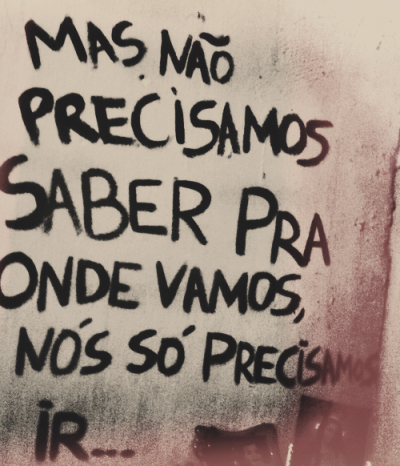 MAS NÃO
PRECISAMOS
SABER PRA
ONDE VAMOS,
NÓS SÓ PRECISAMOS
IR...